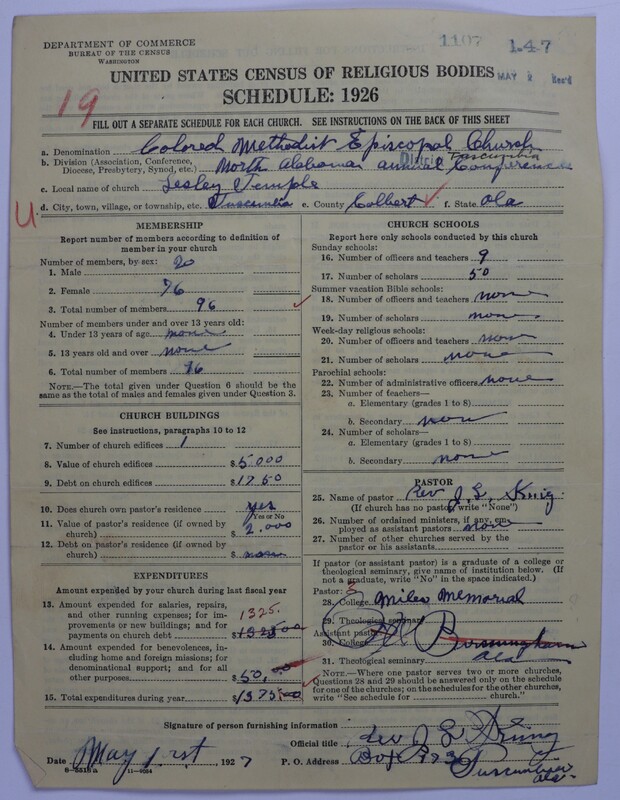 DEPARTMENT OF COMMERCE
BUREAU OF THE CENSUS
WASHINGTON
1107 147
MAY Rec'd
UNITED STATES CENSUS OF RELIGIOUS BODIES
SCHEDULE: 1926
19
FILL OUT A SEPARATE SCHEDULE FOR EACH CHURCH. SEE INSTRUCTIONS ON THE BACK OF THIS SHEET
a. Denomination Colored Methodist Episcopal Church
b. Division (Association, Conference, Diocese, Presbytery, Synod, etc.) North Alabama annual Conference District Tuscumbia
c. Local name of church Lesley Temple
U. d. City, town, village, or township, etc. Tuscumbia e. County Colbert f. State Ala
MEMBERSHIP
Report number of members according to definition of
member in your church
Number of members, by sex:
1. Male 20
2. Female 76
3. Total number of members 96
Number of members under and over 13 years old:
4. Under 13 years of age none
5. 13 years old and over none
6. Total number of members 96
NOTE.—The total given under Question 6 should be the
same as the total of males and females given under Question 3.
CHURCH BUILDINGS
See instructions, paragraphs 10 to 12
7. Number of church edifices 1
8. Value of church edifices $5000
9. Debt on church edifices $1750
10. Does church own pastor's residence yes
Yes or No
11. Value of pastor's residence (if owned by
church) $2.000
12. Debt on pastor's residence (if owned by
church) $none
EXPENDITURES
Amount expended by your church during last fiscal year
13. Amount expended for salaries, repairs,
and other running expenses; for im-
provements or new buildings; and for
payments on church debt 1325. $1325.00
14. Amount expended for benevolences,
including home and foreign missions; for
denominational support; and for all
other purposes $50.00
15. Total expenditures during year $1375.00
CHURCH SCHOOLS
Report here only schools conducted by this church
Sunday schools:
16. Number of officers and teachers 9
17. Number of scholars 50
Summer vacation Bible schools:
18. Number of officers and teachers none
19. Number of scholars none
Week-day religious schools:
20. Number of officers and teachers none
21. Number of scholars none
Parochial schools:
22. Number of administrative officers none
23. Number of teachers—
a. Elementary (grades 1 to 8)
b. Secondary none
24. Number of scholars—
a. Elementary (grades 1 to 8)
b. Secondary none
PASTOR
25. Name of pastor Rev J. L.
(If church has no pastor, write "None")
26. Number of ordained ministers, if any, em-
ployed as assistant pastors none
27. Number of other churches served by the
pastor or his assistants
If pastor (or assistant pastor) is a graduate of a college or
theological seminary, give name of institution below. (If
not a graduate, write "No" in the space indicated.)
Pastor: 3
28. College Miles Memorial
29. Theological seminary
Assistant pastor:
30. College Birmingham
31. Theological seminary Ala
NOTE.—Where one pastor serves two or more churches,
Questions 28 and 29 should be answered only on the schedule
for one of the churches; on the schedules for the other churches,
write "See schedule for church."
Signature of person furnishing information Rev J. L.
Official title
Date May 1.st, 1927 P. O. Address Box
Tuscumbia
Ala.
8-2515a 11-9064